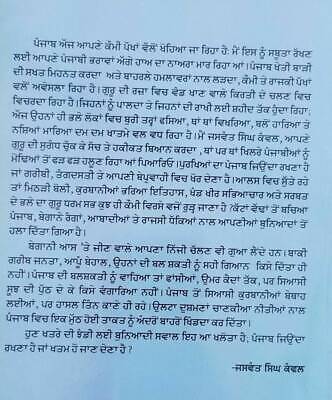 ਪੰਜਾਬ ਅੱਜ ਆਪਣੇ ਕੌਮੀ ਪੱਖਾਂ ਵੱਲੋਂ ਖੋਰਿਆ ਜਾ ਰਿਹਾ ਹੈ; ਮੈਂ ਇਸ ਨੂੰ ਸਬੂਤਾ ਰੱਖਣ
ਲਈ ਆਪਣੇ ਪੰਜਾਬੀ ਭਰਾਵਾਂ ਅੱਗੇ ਹਾਅ ਦਾ ਨਾਅਰਾ ਮਾਰ ਰਿਹਾ ਆਂ।ਪੰਜਾਬ ਖੇਤੀ ਬਾੜੀ
ਦੀ ਸਖਤ ਮਿਹਨਤ ਕਰਦਾ ਅਤੇ ਬਾਹਰਲੇ ਹਮਲਾਵਰਾਂ ਨਾਲ ਲੜਦਾ, ਕੌਮੀ ਤੇ ਰਾਜਕੀ ਪੱਖਾਂ
ਵਲੋਂ ਅਵੇਸਲਾ ਰਿਹਾ ਹੈ। ਗੁਰੂ ਦੀ ਰਜ਼ਾ ਵਿਚ ਵੰਡ ਖਾਣ ਵਾਲੇ ਕਿਰਤੀ ਦੇ ਚਲਣ ਵਿਚ
ਵਿਚਰਦਾ ਰਿਹਾ ਹੈ।ਜਿਹਨਾਂ ਨੂੰ ਪਾਲਦਾ ਤੇ ਜਿਹਨਾਂ ਦੀ ਰਾਖੀ ਲਈ ਸ਼ਹੀਦ ਹੁੰਦਾ ਰਿਹਾ;
ਅੱਜ ਉਹਨਾਂ ਹੀ ਭਲੇ ਲੋਕਾਂ ਵਿਚ ਬੁਰੀ ਤਰ੍ਹਾਂ ਫਸਿਆ, ਥਾਂ ਥਾਂ ਵਿਖਰਿਆ, ਬਲੋਂ ਹਾਰਿਆ ਤੇ
ਨਸ਼ਿਆਂ ਮਾਰਿਆ ਦਮ ਦਮ ਖਾਤਮੇ ਵਲ ਵਧ ਰਿਹਾ ਹੈ। ਮੈਂ ਜਸਵੰਤ ਸਿੰਘ ਕੰਵਲ, ਆਪਣੇ
ਗੁਰੂ ਦੀ ਸੁਰੱਧ ਚੁੱਕ ਕੇ ਸੱਚ ਤੇ ਹਕੀਕਤ ਬਿਆਨ ਕਰਦਾ, ਥਾਂ ਪਰ ਥਾਂ ਖਿਲਰੇ ਪੰਜਾਬੀਆਂ ਨੂੰ
ਮੋਢਿਆਂ ਤੋਂ ਫੜ ਫੜ ਹਲੂਣ ਰਿਹਾ ਆਂ ਪਿਆਰਿਓ।ਪੁਰਖਿਆਂ ਦਾ ਪੰਜਾਬ ਜਿਉਂਦਾ ਰਖਣਾ ਹੈ
ਜਾਂ ਗਰੀਬੀ, ਤੰਗਦਸਤੀ ਤੇ ਆਪਣੀ ਬੇਪ੍ਰਵਾਹੀ ਵਿਚ ਖੋਰ ਦੇਣਾ ਹੈ।ਆਲਸ ਵਿਚ ਸੁੱਤੇ ਰਹੇ
ਤਾਂ ਮਿਠੜੀ ਬੋਲੀ, ਕੁਰਬਾਨੀਆਂ ਭਰਿਆ ਇਤਿਹਾਸ, ਖੰਡ ਖੀਰ ਸਭਿਆਚਾਰ ਅਤੇ ਸਰਬਤ
ਦੇ ਭਲੇ ਦਾ ਗੁਰੂ ਧਰਮ ਸਭ ਕੁਝ ਹੀ ਕੌਮੀ ਵਿਰਸੇ ਵਜੋਂ ਰੁੜ੍ਹ ਜਾਣਾ ਹੈ।ਕੱਟਾਂ ਵੱਢਾਂ ਤੋਂ ਬਚਿਆ
ਪੰਜਾਬ, ਬੇਗਾਨੇ ਰੰਗਾਂ, ਆਬਾਦੀਆਂ ਤੇ ਰਾਜਸੀ ਧੱਕਿਆਂ ਨਾਲ ਆਪਣੀਆਂ ਬੁਨਿਆਦਾਂ ਤੋਂ
ਹਲਾ ਦਿੱਤਾ ਗਿਆ ਹੈ।
ਬੇਗਾਨੀ ਆਸ 'ਤੇ ਜੀਣ ਵਾਲੇ ਆਪਣਾ ਨਿੱਜੀ ਚੱਲਣ ਵੀ ਗੁਆ ਲੈਂਦੇ ਹਨ। ਬਾਕੀ
ਗਰੀਬ ਜਨਤਾ, ਆਪੂੰ ਬੇਹਾਲ, ਉਹਨਾਂ ਦੀ ਬਲ ਸ਼ਕਤੀ ਨੂੰ ਸਹੀ ਗਿਆਨ ਕਿਸੇ ਦਿੱਤਾ ਹੀ
ਨਹੀਂ।ਪੰਜਾਬ ਦੀ ਬਲਸ਼ਕਤੀ ਨੂੰ ਵਾਹਿਆ ਤਾਂ ਫਾਂਸੀਆਂ, ਉਮਰ ਕੈਦਾਂ ਤੱਕ, ਪਰ ਸਿਆਸੀ
ਸੂਝ ਦੀ ਪੁੱਠ ਦੇ ਕੇ ਕਿਸੇ ਵੰਗਾਰਿਆ ਨਹੀਂ। ਪੰਜਾਬ ਤੋਂ ਸਿਆਸੀ ਕੁਰਬਾਨੀਆਂ ਬੇਬਾਹ
ਲਈਆਂ, ਪਰ ਹਾਸਲ ਤਿੰਨ ਕਾਣੇ ਹੀ ਰਹੇ। ਉਲਟਾ ਦੁਸ਼ਮਣਾਂ ਚਾਣਕੀਆ ਨੀਤੀਆਂ ਨਾਲ
ਪੰਜਾਬ ਵਿਚ ਇਕ ਮੁੱਠ ਹੋਈ ਤਾਕਤ ਨੂੰ ਅੰਦਰੋਂ ਬਾਹਰੋਂ ਖਿੰਡਾ ਕਰ ਦਿੱਤਾ।
ਹੁਣ ਖਤਰੇ ਦੀ ਝੰਡੀ ਲਈ ਬੁਨਿਆਦੀ ਸਵਾਲ ਇਹ ਆ ਖਲੋਤਾ ਹੈ; ਪੰਜਾਬ ਜਿਉਂਦਾ
ਰਖਣਾ ਹੈ ਜਾਂ ਖਤਮ ਹੋ ਜਾਣ ਦੇਣਾ ਹੈ ?
-ਜਸਵੰਤ ਸਿੰਘ ਕੰਵਲ